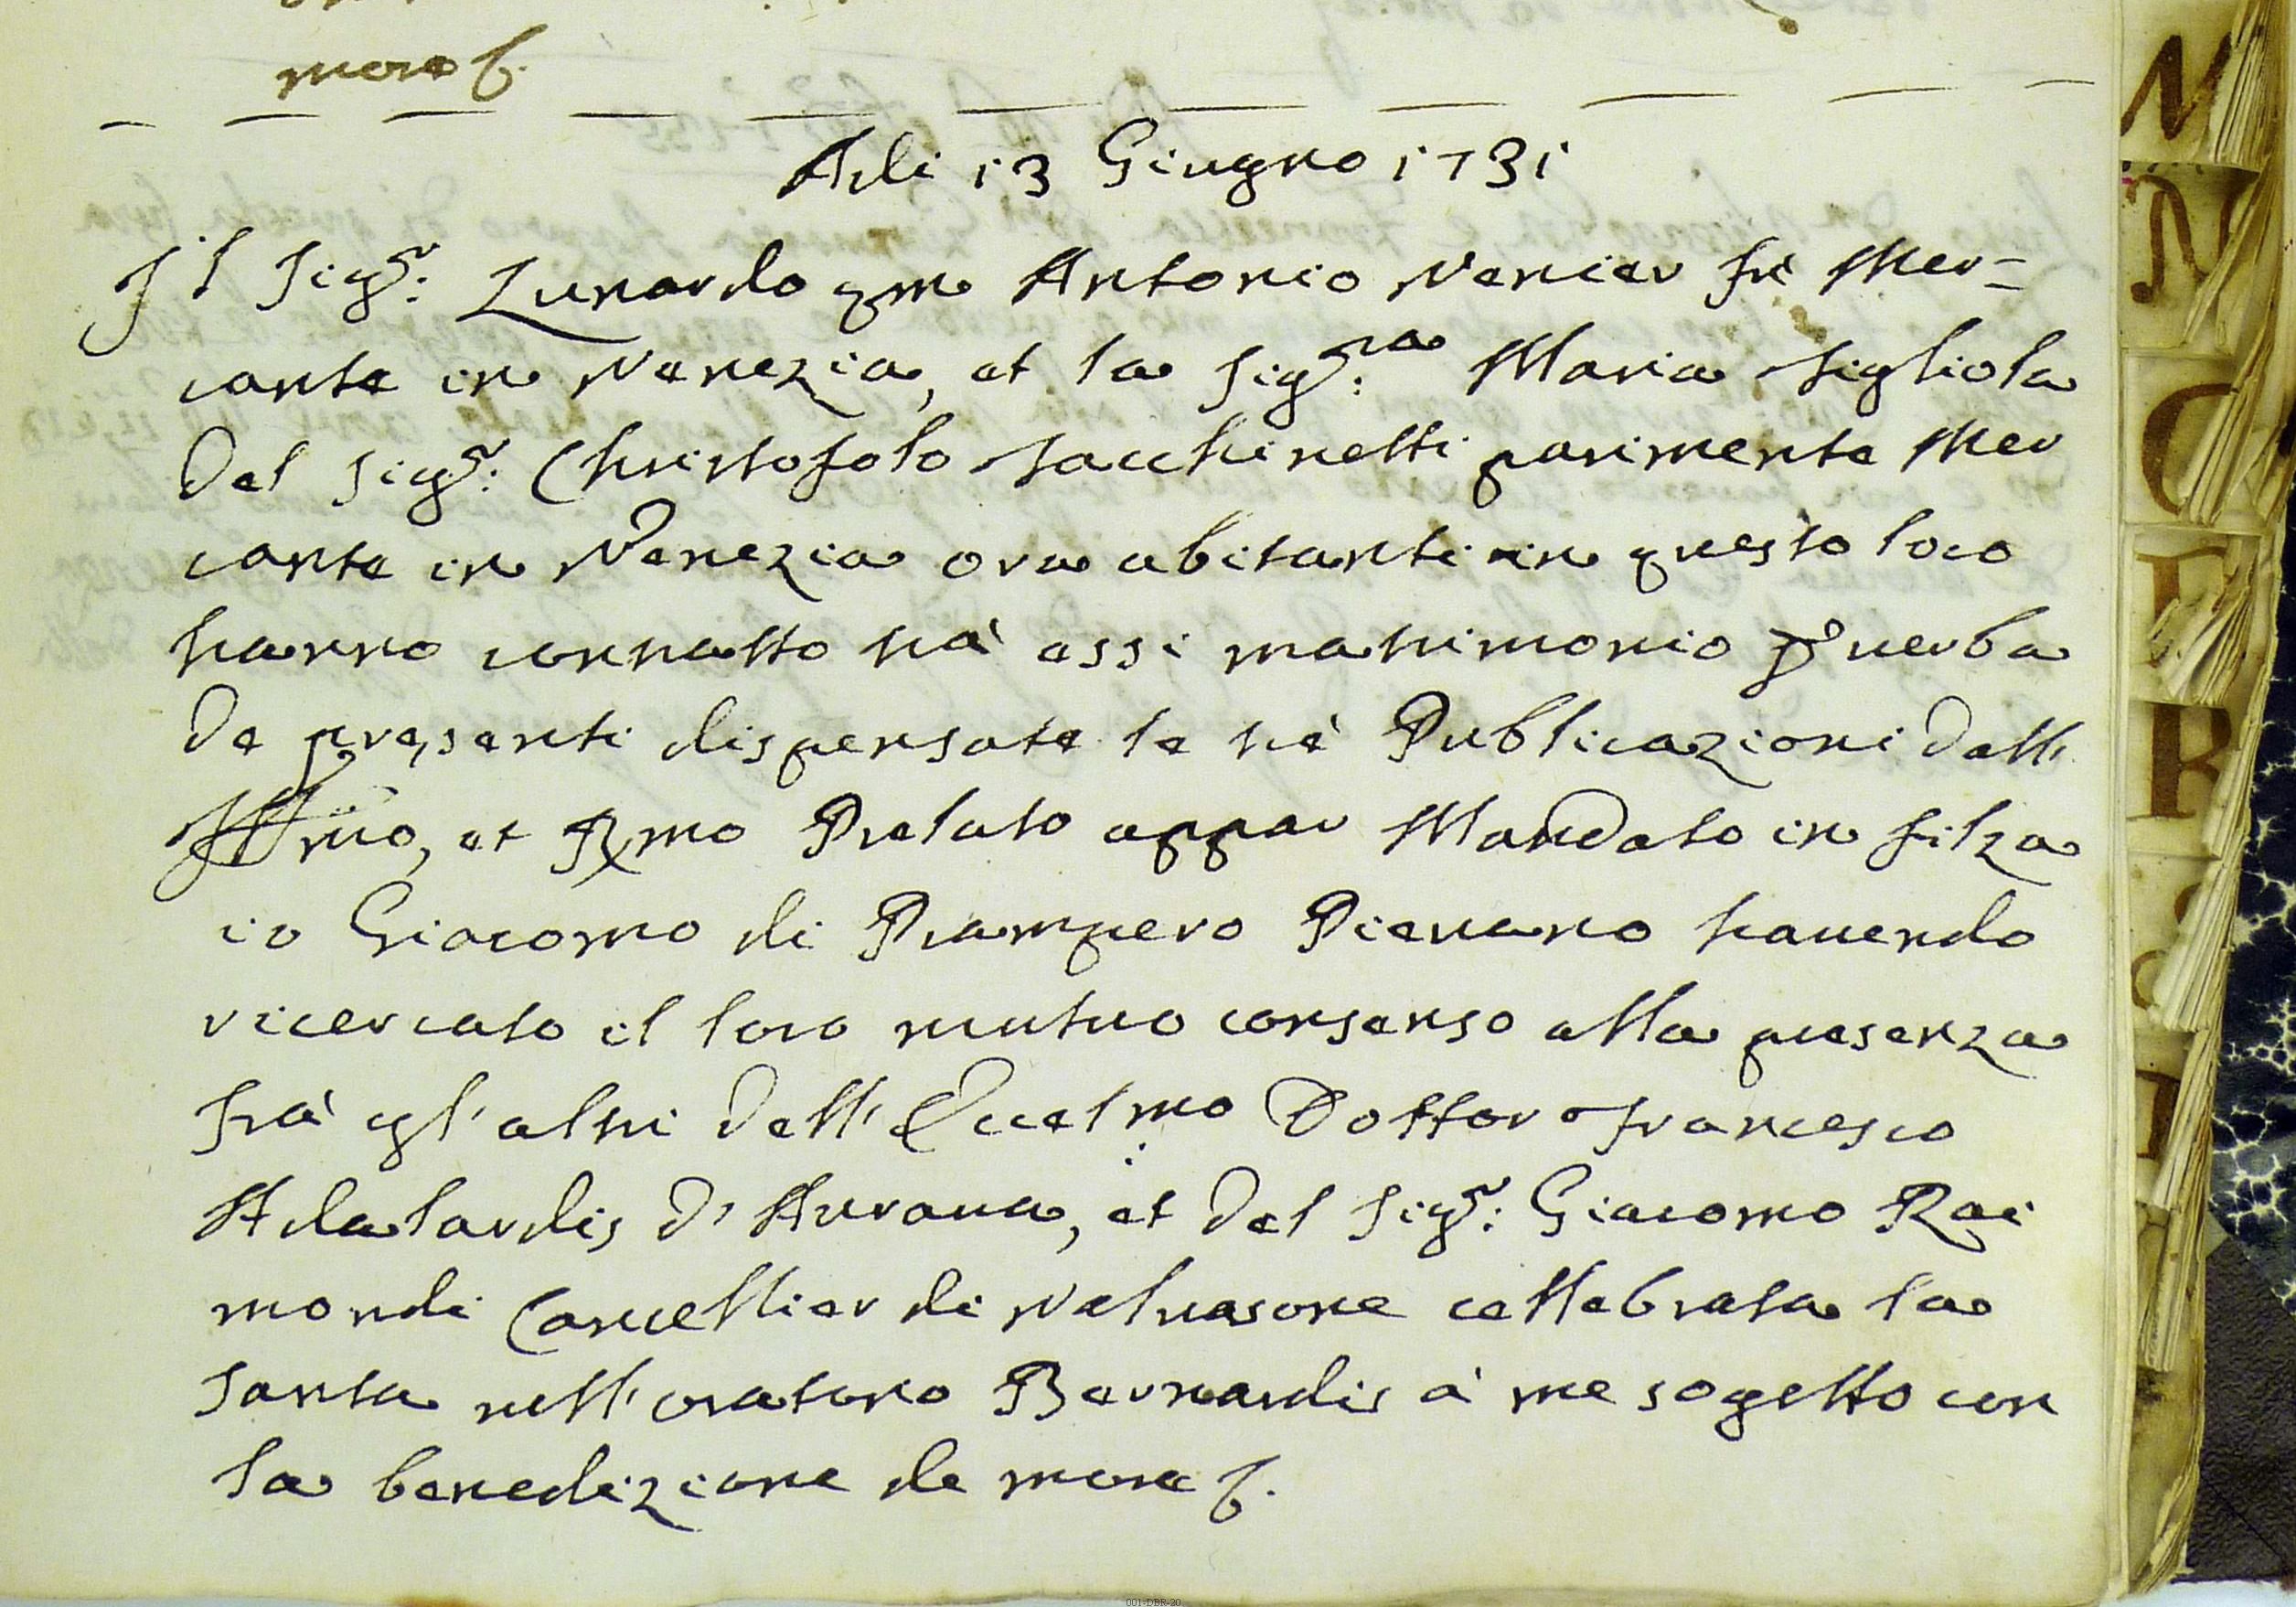 more &c.
Adi 13 Giugno 1731
Il Sigr: Lunardo qm Antonio Venier fù Mer=
cante in Venezia, et la Sigra: Maria figliola
del Sigr: Christofolo Facchinetti parimente Mer
cante in Venezia ora abitanti in questo loco
hanno contratto trà essi matrimonio p verba
de presenti dispensate le tré Publicazioni dall'
Illmo, et Rmo Prelato appar Mandato in filza
io Giacomo di Prampero Pievano havendo
ricercato il loro mutuo consenso alla presenza
frà gl'altri dell'Eccelmo Dottor Francesco
Adalardis d'Aurava, et del Sigr: Giacomo Rai
mondi Cancellier di Valvasone cellebrata la
Santa nell'oratorio Bernardis à me sogetto con
la benedizione de more &c.